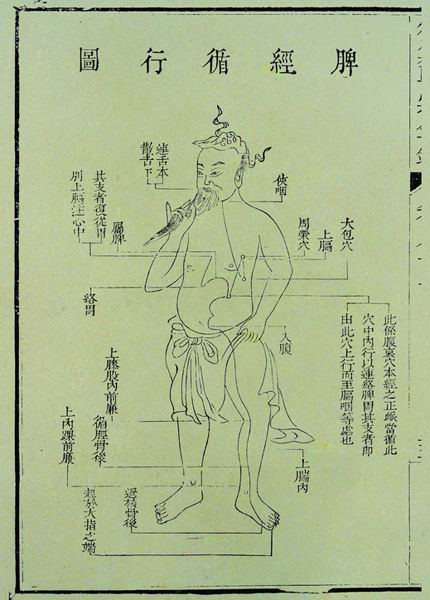 脾經循行圖
連舌本
散舌下
俠咽
大包穴
上膈
周榮穴
屬脾
其支者復從胃
別上膈注心中
絡胃
此係腹哀穴本經之正脈當循此
穴中內行以連絡脾胃其支者即
由此穴上行而至膈咽等處也
入腹
上膝股內前廉
循脛骨後
上內踝前廉
上腨內
過核骨後
起於大指之端